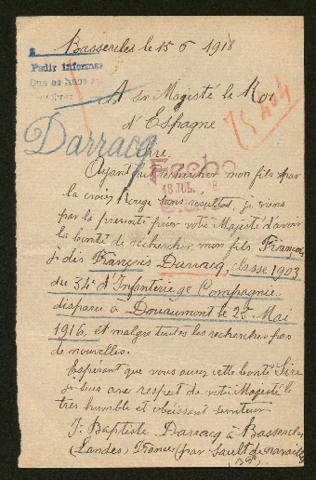 Bassercles le 15 6 1918
Pedir informes
A sa Majesté le Roi
d'Espagne
Darracq
Sire
Fecha
18 JUL. 18
Ayant fait rechercher mon fils par
la croix Rouge sans resultat, je viens
par la presente prier votre Majesté d'avoir
la bonté de rechercher mon fils François
je dis François Darracq, classe 1903
du 34e d'Infanterie 9e Compagnie
disparu à Douaumont le 25 Mai
1916, et malgre toutes les recherches pas
de nouvelles.
Espérant que vous aurez cette bonté Sire
je suis avec respect de votre Majesté le
tres humble et obeissant serviteur
J. Baptiste Darracq à Bassercles
(Landes) France (par Sault de navailles